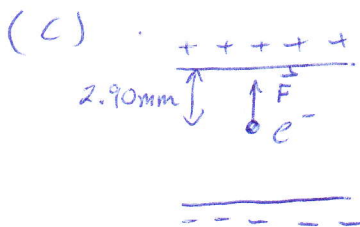 (C)
+ + + + +
2.90mm
F⃗
e⁻
- - - - -